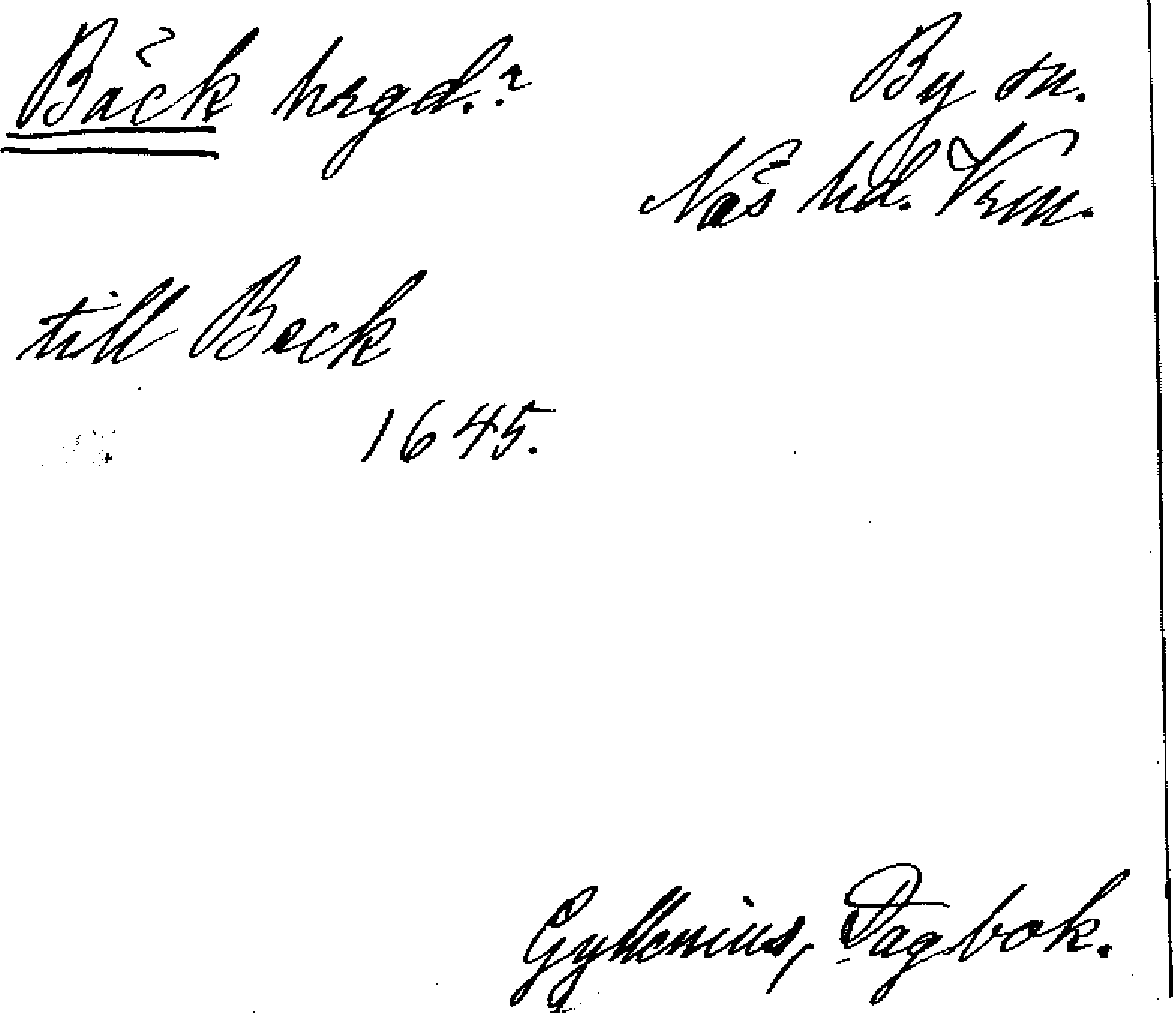 Bäck hrgd.?
By sn.
Näs hd. Vrm.
till Beck
1645.
Gyllenius, Dagbok.